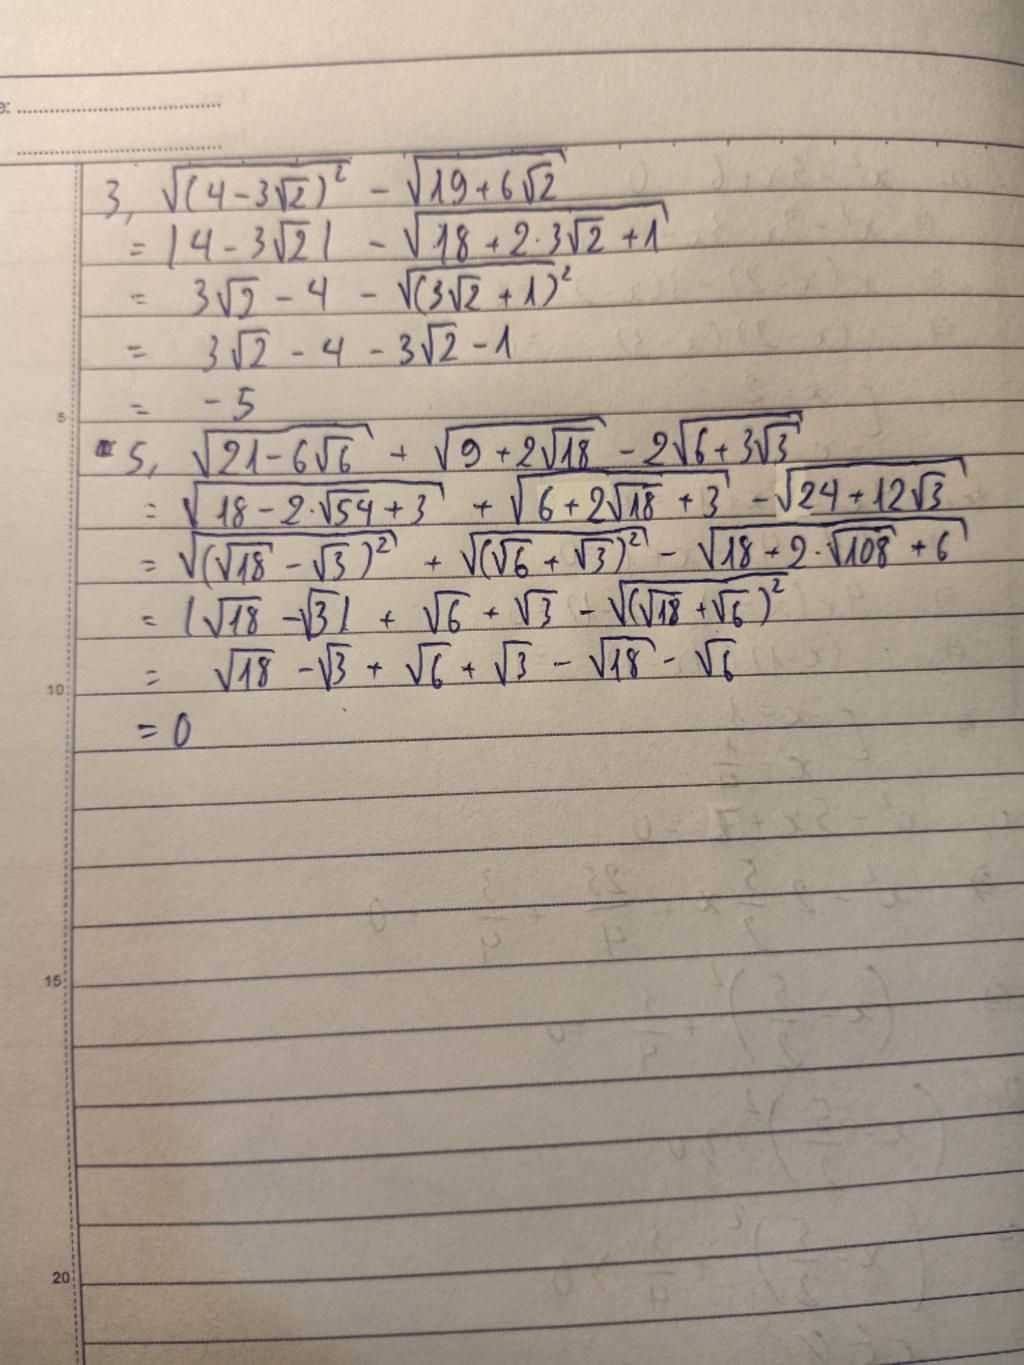 e: ........................
3, √(4-3√2)² - √19+6√2
= |4-3√2| - √18+2·3√2+1
= 3√2 - 4 - √(3√2+1)²
= 3√2 - 4 - 3√2 - 1
= -5
5
5, √21-6√6 + √9+2√18 - 2√6+3√3
= √18-2·√54+3 + √6+2√18+3 - √24+12√3
= √(√18-√3)² + √(√6+√3)² - √18+2·√108+6
= |√18-√3| + √6+√3 - √(√18+√6)²
10
= √18-√3+√6+√3-√18-√6
= 0
15
20